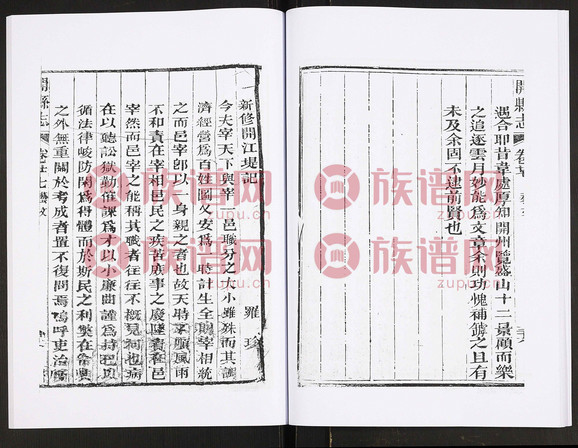 開縣志
卷二十七 藝文
遇合耶昔韋處厚知開州覽盛山十二景顧而樂
之追逐雲月妙能為文章余則功愧補罅之且有
未及余固不逮前賢也
新修開江堤記
羅珍
今夫宰天下與宰一邑職分之大小雖殊而其講
濟經營為百姓圖乂安為 時計生全則宰相統
之而邑宰卽以一身親之者也故天時苦順風雨
不和責在宰相邑民之疾苦庶事之廢墜責在邑
宰然而邑宰之能稱其職者往往不概見何也病
在以聽訟獄勤催課為才以小廉曲謹為持己以
循法律峻防閑為得體而於斯民之利獘在當興
之外無重關於考成者置不復問焉嗚呼吏治
開縣志
卷廿七 藝文
族谱网
zupu.cn
族谱网
zupu.cn
族谱网
zupu.cn
族谱网
zupu.cn